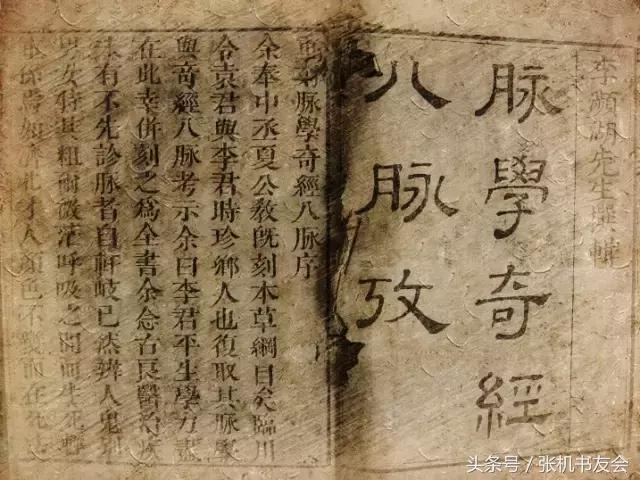 李瀕湖先生輯
脉學奇經
八脉攷
脉學奇經八脉序
余奉中丞夏公教旣刻本草綱目矣臨川
令袁君與李君時珍鄉人也復取其脉學
與奇經八脉考示余曰李君平生學力盡
在此幸併刻之爲全書余念古良醫治疾
未有不先診脉者自軒岐已然辨人鬼別
男女特其粗爾微茫呼吸之間而生死
如濟北才人顏色不變而在死
头条号／张机书友会